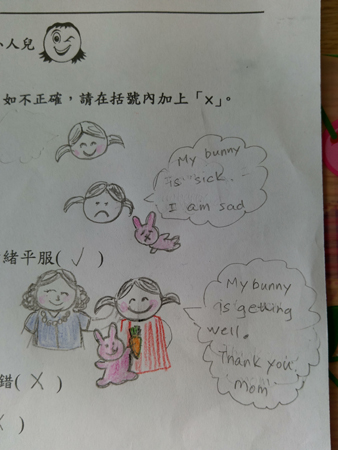 小人兒
如不正確，請在括號內加上「×」。
My bunny
is sick.
I am sad
緒平服( ✓ )
My bunny
is getting
well.
Thank you
Mom
錯( X )
X )